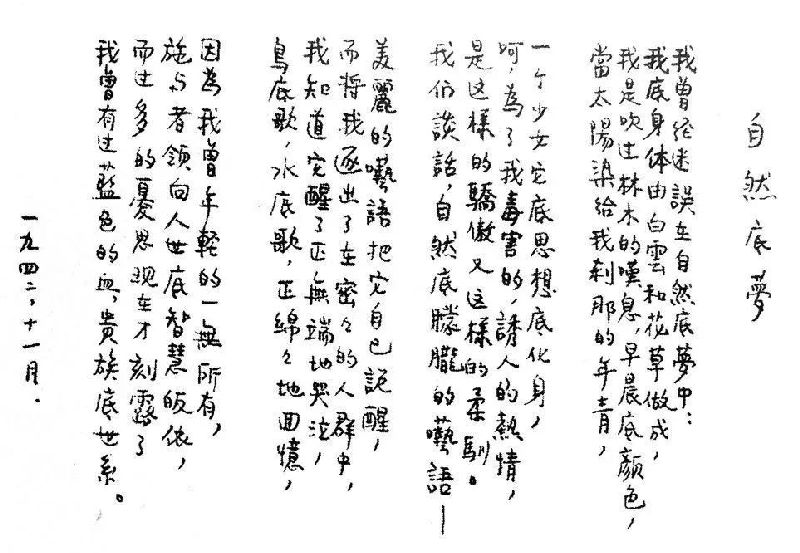 自然底夢
我曾经迷誤在自然底夢中：
我底身体由白雲和花草做成，
我是吹过林木的嘆息，早晨底顏色，
當太陽染給我刹那的年青，
一个少女它底思想底化身，
呵，為了我毒害的，誘人的熱情，
是这樣的驕傲又这樣的柔馴。
我们談話，自然底朦朧的囈語—
美麗的囈語把它自己説醒，
而将我逐出了在密々的人群中，
我知道它醒了正無端地哭泣，
鳥底歌，水底歌，正綿々地回憶，
因為我曾年輕的一無所有，
施与者領向人世底智慧皈依，
而过多的憂思现在才刻露了
我曾有过藍色的血，貴族底世系。
一九四二，十一月．